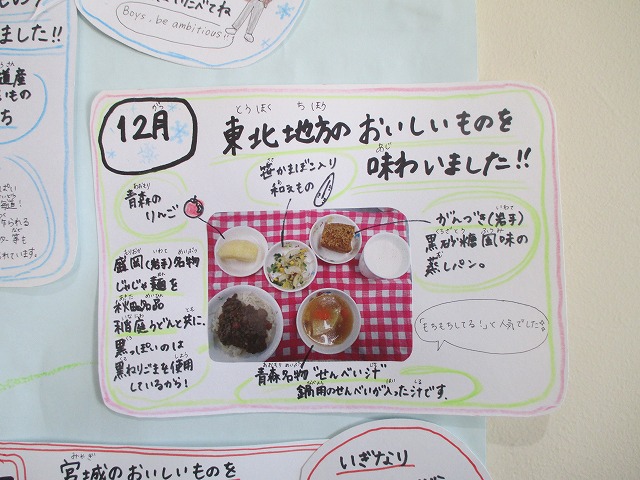 Boys, be ambitious!!
ました!!
12月
がつ
とうほく ちほう
東北地方のおいしいものを
あじ
味わいました!!
笹かまぼこ入り
和えもの
あおもり
青森の
りんご
いわて
がんづき(岩手)
黒砂糖風味の
蒸しパン。
もりおか いわて めいぶつ
盛岡(岩手)名物
じゃじゃ麺を
秋田名品
稲庭うどんと共に。
黒っぽいのは
黒ねりごまを使用
しているから!
「もちもちしてる!」と人気でした
青森名物"せんべい汁"
鍋用のせんべいが入った汁です。
みやぎ
宮城のおいしいものを
いぎなり